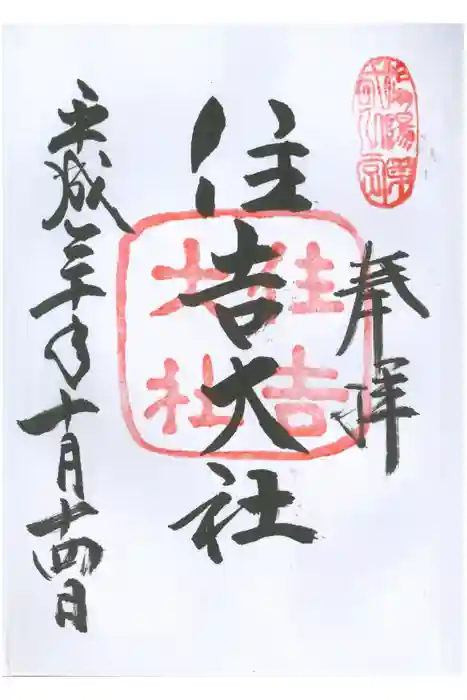 奉拝
住吉大社
住吉
大社
平成三十年十月十四日